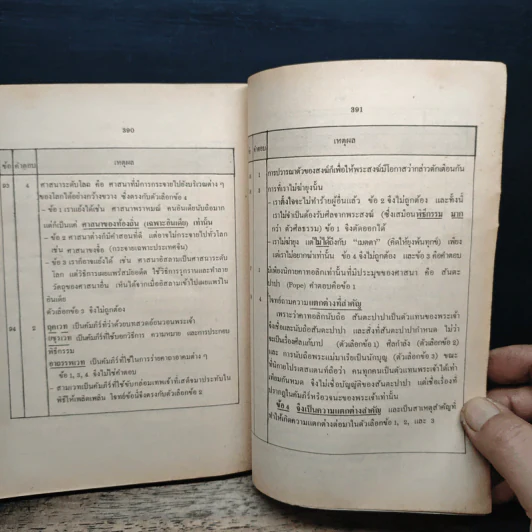 390
ข้อ คำตอบ เหตุผล
93 4 ศาสนาระดับโลก คือ ศาสนาที่มีการกระจายไปยังบริเวณต่าง ๆ
ของโลกได้อย่างกว้างขวาง ซึ่งตรงกับตัวเลือกข้อ 4
- ข้อ 1 เราแย้งได้เช่น ศาสนาพราหมณ์ คนอินเดียนับถือมาก
แต่ก็เป็นแค่ ศาสนาของท้องถิ่น (เฉพาะอินเดีย) เท่านั้น
- ข้อ 2 ศาสนาต่างก็มีคำสอนที่ดี แต่อาจไม่กระจายไปทั่วโลก
เช่น ศาสนาขงจื้อ (กระจายเฉพาะประเทศจีน)
- ข้อ 3 เราก็อาจแย้งได้ เช่น ศาสนาอิสลามเป็นศาสนาระดับ
โลก แต่วิธีการเผยแพร่สมัยอดีต ใช้วิธีการรุกรานและทำลาย
วัตถุของศาสนาอื่น เห็นได้จากเมื่ออิสลามเข้าไปเผยแพร่ใน
อินเดีย
ตัวเลือกข้อ 3 จึงไม่ถูกต้อง
94 2 ฤคเวท เป็นคัมภีร์ที่ว่าด้วยบทสวดอ้อนวอนพระเจ้า
ยชุรเวท เป็นคัมภีร์ที่ใช้บอกวิธีการ ความหมาย และการประกอบ
พิธีกรรม
อาถรรพเวท เป็นคัมภีร์ที่ใช้ในการร่ายคาถาอาคมต่าง ๆ
ข้อ 1, 3, 4 จึงไม่ใช่คำตอบ
- สามเวทเป็นคัมภีร์ที่ใช้ขับกล่อมเทพเจ้าที่เสด็จมาประทับใน
พิธีให้เพลิดเพลิน โจทย์ข้อนี้จึงตรงกับตัวเลือกข้อ 2
391
คำตอบ เหตุผล
การปวารณาตัวของสงฆ์ก็เพื่อให้พระสงฆ์มีโอกาสว่ากล่าวตักเตือนกัน
การที่เราไม่ฆ่ายุงนั้น
- เราตั้งใจจะไม่ทำร้ายผู้อื่นแล้ว ข้อ 2 จึงไม่ถูกต้อง และทั้งนี้
เราไม่จำเป็นต้องรับศีลจากพระสงฆ์ (ซึ่งเสมือนพิธีกรรม มาก
กว่า ตัวศีลธรรม) ข้อ 1 จึงตัดออกได้
- เราไม่ฆ่ายุง แต่ไม่ได้ถึงกับ "เมตตา" (คิดให้ยุงพ้นทุกข์) เพียง
แต่เราไม่อยากฆ่าเท่านั้น ข้อ 4 จึงไม่ถูกต้อง และข้อ 3 คือคำตอบ
มีเพียงนิกายคาทอลิกเท่านั้นที่มีประมุขของศาสนา คือ สันตะ
ปาปา (Pope) คำตอบคือข้อ 1
4 โจทย์ถามความแตกต่างที่สำคัญ
เพราะว่าคาทอลิกนับถือ สันตะปาปาเป็นตัวแทนของพระเจ้า
จึงเชื่อและนับถือสันตะปาปา และสิ่งที่สันตะปาปากำหนด ไม่ว่า
จะเป็นเรื่องศีลแก้บาป (ตัวเลือกข้อ 1) ศีลกำลัง (ตัวเลือกข้อ 2)
และ การนับถือพระแม่มาเรียเป็นนักบุญ (ตัวเลือกข้อ 3) ขณะ
ที่นิกายโปรเตสแตนท์ถือว่า คนทุกคนเป็นตัวแทนพระเจ้าได้เท่า
เทียมกันหมด จึงไม่เชื่อบัญญัติของสันตะปาปา แต่เชื่อเรื่องที่
ปรากฏในคัมภีร์หรือวจนะของพระเจ้าเท่านั้น
ข้อ 4 จึงเป็นความแตกต่างสำคัญ และเป็นสาเหตุสำคัญที่
ทำให้เกิดความแตกต่างต่อมาในตัวเลือก ข้อ 1, 2, และ 3